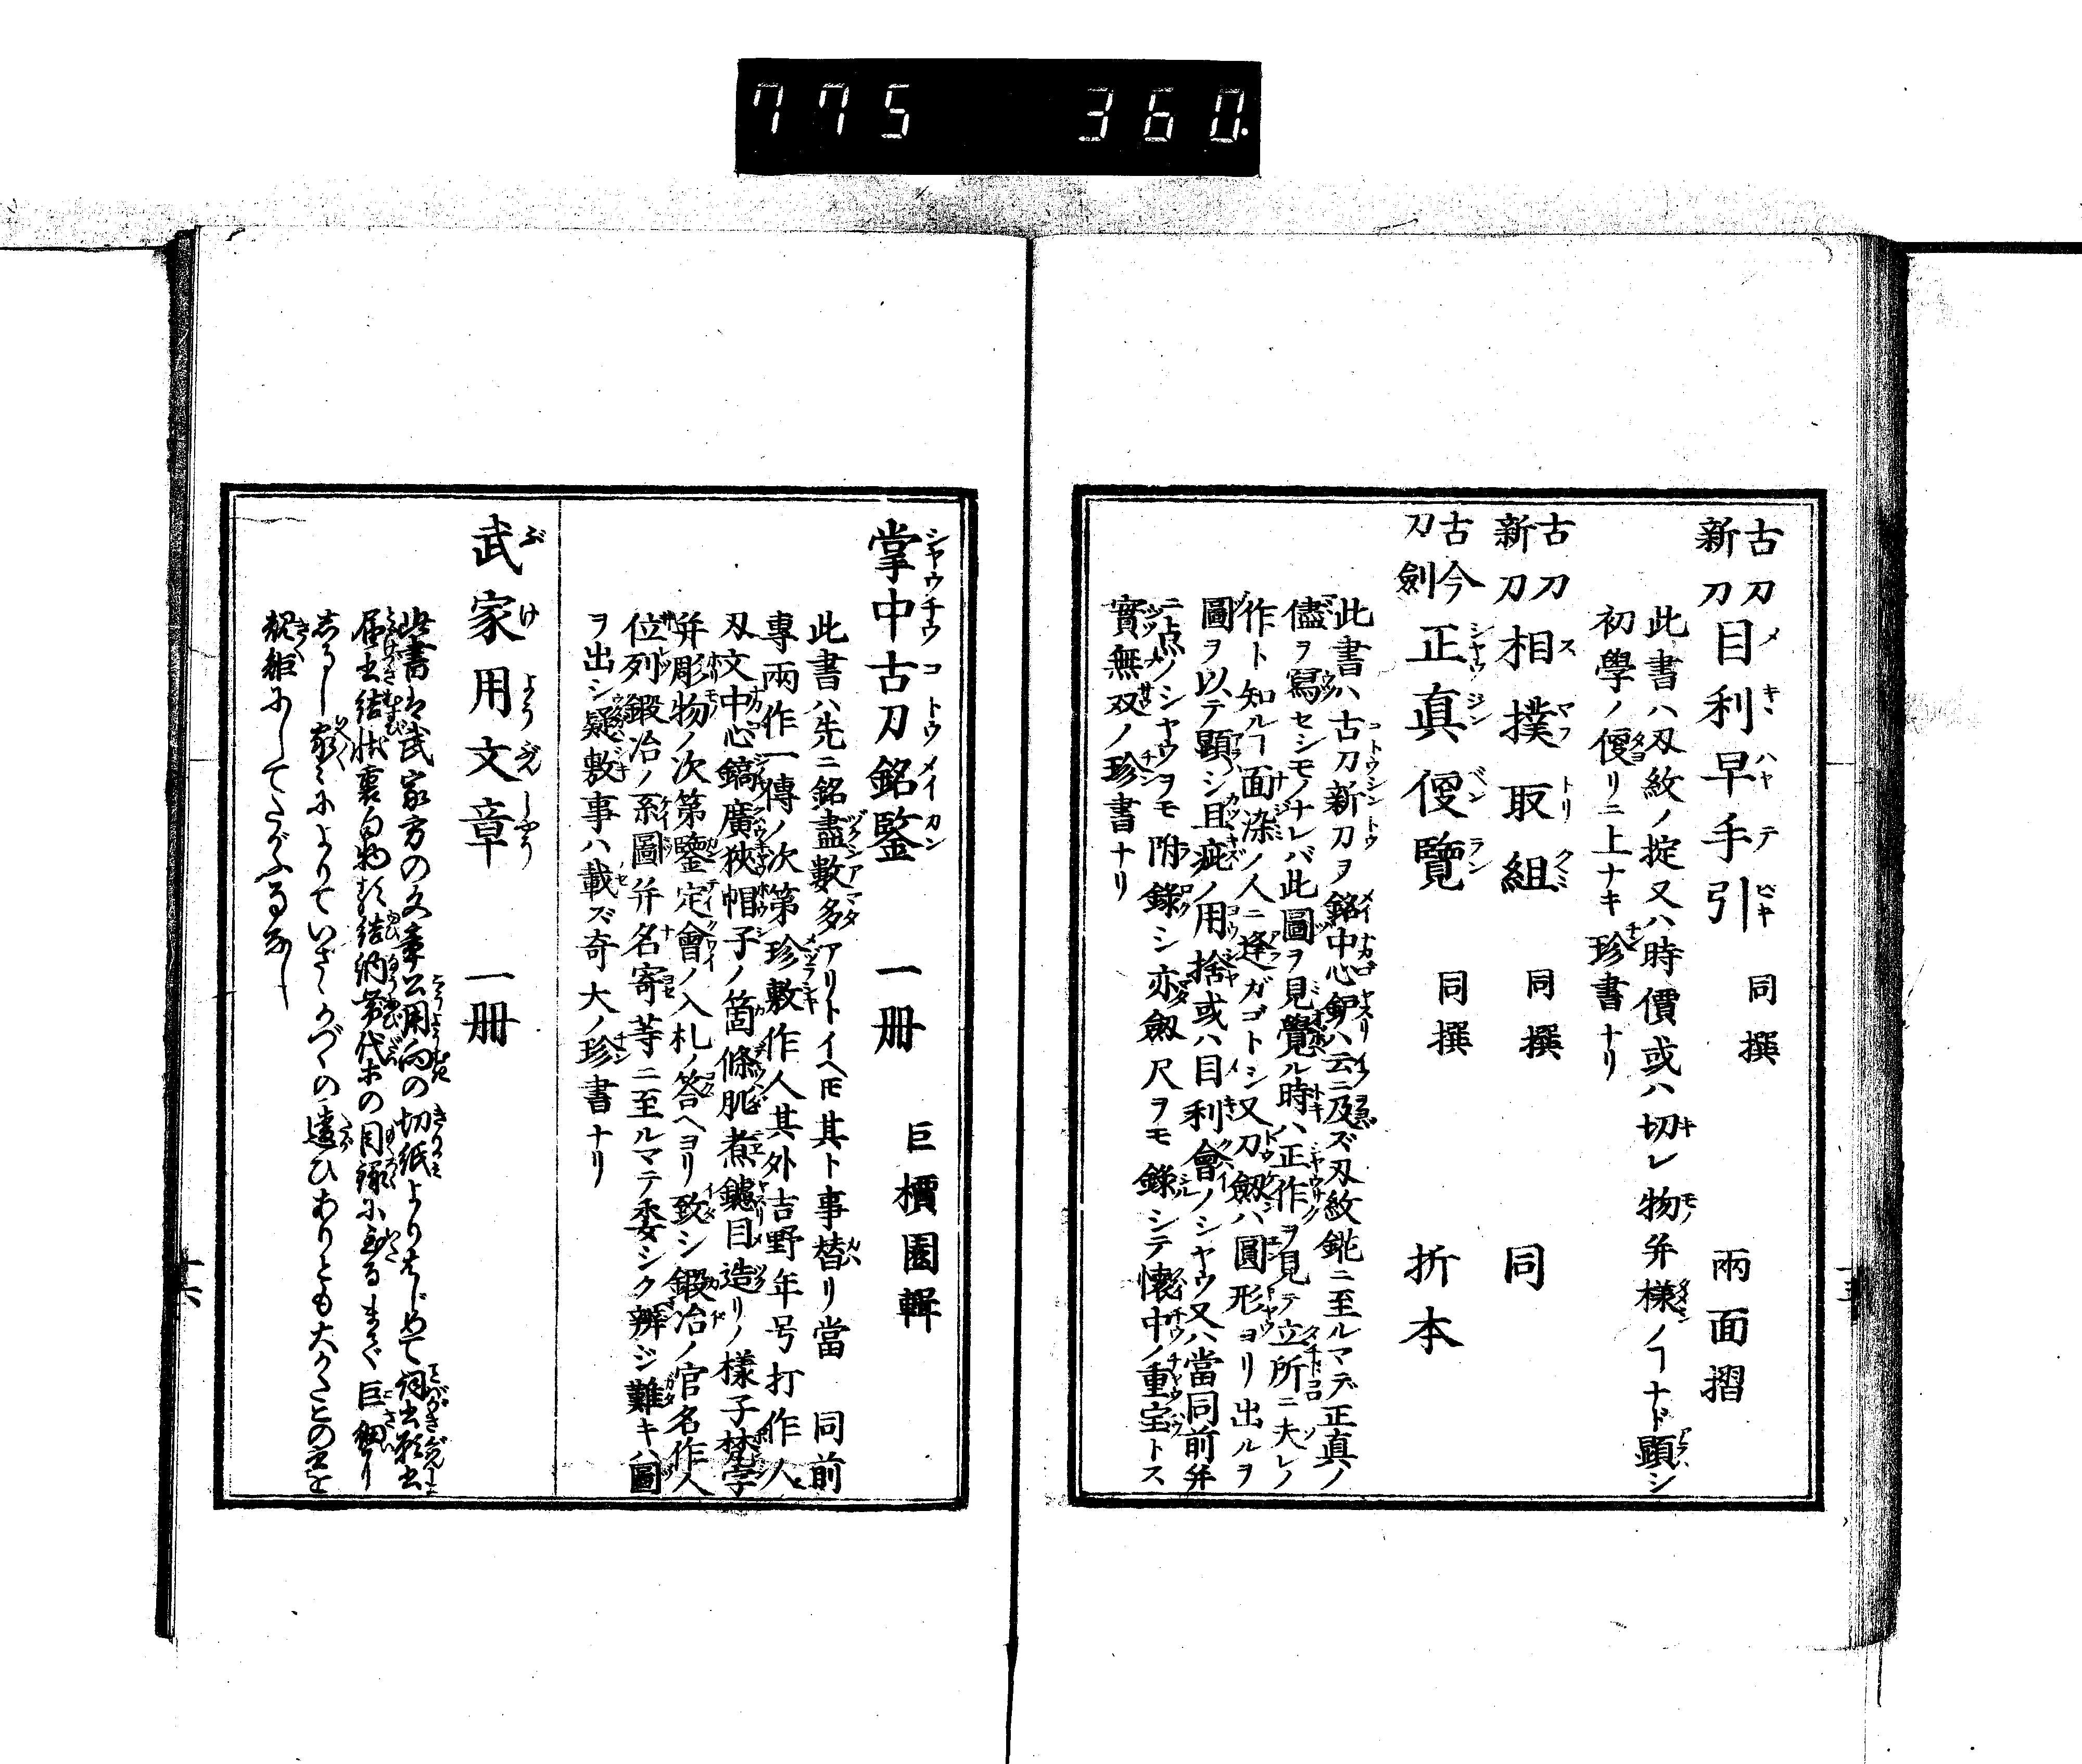 775 360
古刀新刀目利早手引 同撰 兩面摺
此書ハ刄紋ノ掟又ハ時價或ハ切レ物并様ノヿナド顕シ
初學ノ便リニ上ナキ珍書ナリ
古刀新刀相撲取組 同撰 同
古今刀劍正真便覽 同撰 折本
此書ハ古刀新刀ヲ銘中心鈩ハ云ニ及ズ刄紋鋩ニ至ルマデ正真ノ
儘ヲ寫セシモノナレバ此圖ヲ見覺ル時ハ正作ヲ見テ立所ニ夫レノ
作ト知ルヿ面染ノ人ニ逢ガゴトシ又刀劔ハ圓形ヨリ出ルヲ
圖ヲ以テ顕シ且疵ノ用捨或ハ目利會ノシヤウ又ハ當同前并
ニ点ノシヤウヲモ附錄シ亦劔尺ヲモ錄シテ懐中ノ重宝トス
實無双ノ珍書ナリ
掌中古刀銘鑒 一冊 巨櫝園輯
此書ハ先ニ銘盡數多アリトイヘ𪜈其ト事替リ當同前
專兩作一傳ノ次第珍敷作人其外吉野年号打作人
刄文中心鎬廣狹帽子ノ箇條肌煮鑢目造リノ様子梵字
并彫物ノ次第鑒定會ノ入札ノ答ヘヨリ致シ鍛冶ノ官名作人
位列鍛冶ノ系圖并名寄等ニ至ルマテ委シク辨ジ難キハ圖
ヲ出シ疑敷事ハ載ズ奇大ノ珍書ナリ
武家用文章 一冊
此書は武家方の文章公用向の切紙よりはじめて
届書結状裏白物結納帯代ホの目録に至るまで巨細に
よりていさゝかづゝの違ひありとも大かたとの
規矩にしてたがふるなし
十五
十六